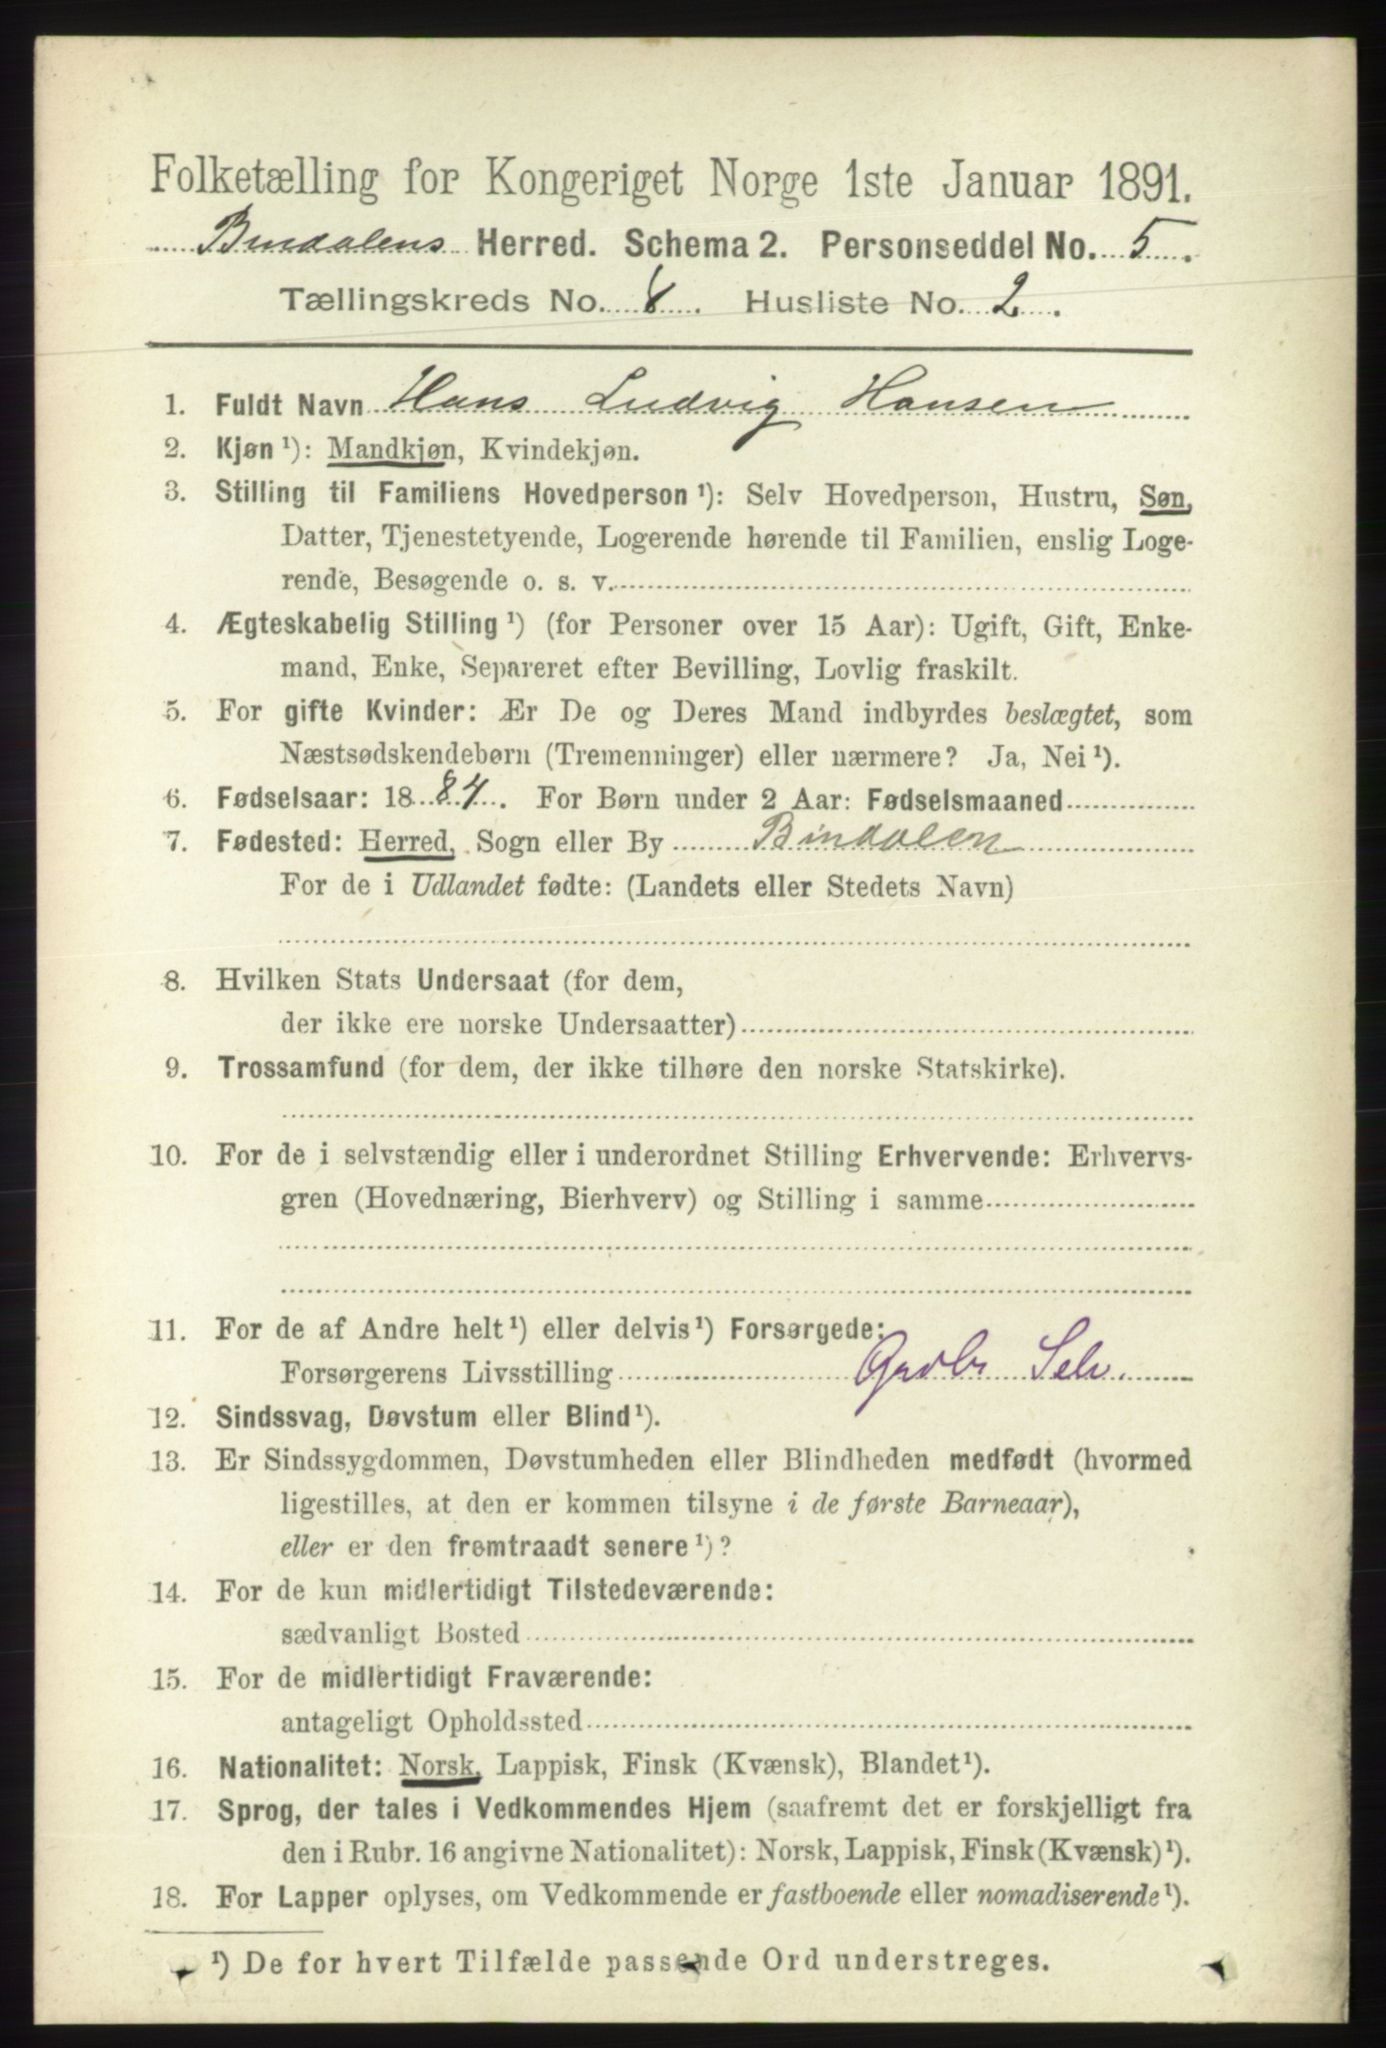 Folketælling for Kongeriget Norge 1ste Januar 1891.
Bindalens Herred. Schema 2. Personseddel No. 5.
Tællingskreds No. 8. Husliste No. 2.
1. Fuldt Navn Hans Ludvig Hansen
2. Kjøn ¹): Mandkjøn, Kvindekjøn.
3. Stilling til Familiens Hovedperson ¹): Selv Hovedperson, Hustru, Søn,
Datter, Tjenestetyende, Logerende hørende til Familien, enslig Loge-
rende, Besøgende o. s. v.
4. Ægteskabelig Stilling ¹) (for Personer over 15 Aar): Ugift, Gift, Enke-
mand, Enke, Separeret efter Bevilling, Lovlig fraskilt.
5. For gifte Kvinder: Er De og Deres Mand indbyrdes beslægtet, som
Næstsødskendebørn (Tremenninger) eller nærmere? Ja, Nei ¹).
6. Fødselsaar: 1884. For Børn under 2 Aar: Fødselsmaaned
7. Fødested: Herred, Sogn eller By Bindalen
For de i Udlandet fødte: (Landets eller Stedets Navn)
8. Hvilken Stats Undersaat (for dem,
der ikke ere norske Undersaatter)
9. Trossamfund (for dem, der ikke tilhøre den norske Statskirke).
10. For de i selvstændig eller i underordnet Stilling Erhvervende: Erhvervs-
gren (Hovednæring, Bierhverv) og Stilling i samme
11. For de af Andre helt ¹) eller delvis ¹) Forsørgede:
Forsørgerens Livsstilling Gadbr Selv.
12. Sindssvag, Døvstum eller Blind ¹).
13. Er Sindssygdommen, Døvstumheden eller Blindheden medfødt (hvormed
ligestilles, at den er kommen tilsyne i de første Barneaar),
eller er den fremtraadt senere ¹)?
14. For de kun midlertidigt Tilstedeværende:
sædvanligt Bosted
15. For de midlertidigt Fraværende:
antageligt Opholdssted
16. Nationalitet: Norsk, Lappisk, Finsk (Kvænsk), Blandet ¹).
17. Sprog, der tales i Vedkommendes Hjem (saafremt det er forskjelligt fra
den i Rubr. 16 angivne Nationalitet): Norsk, Lappisk, Finsk (Kvænsk) ¹).
18. For Lapper oplyses, om Vedkommende er fastboende eller nomadiserende ¹).
¹) De for hvert Tilfælde passende Ord understreges.